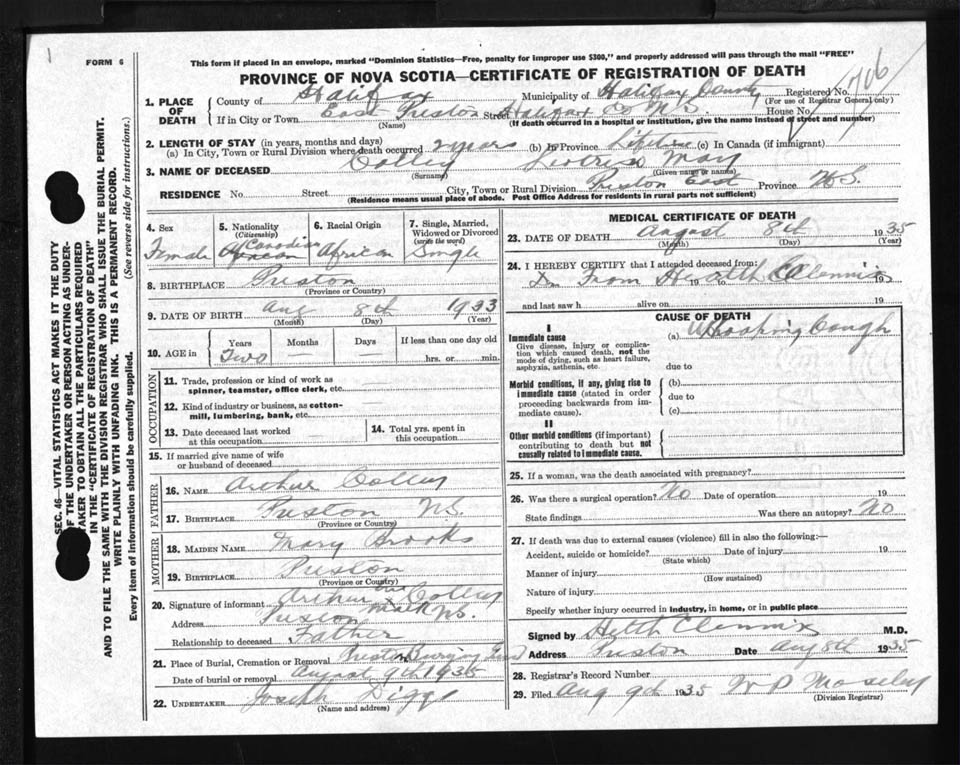 1
FORM 6
This form if placed in an envelope, marked "Dominion Statistics—Free, penalty for improper use $300," and properly addressed will pass through the mail "FREE"
PROVINCE OF NOVA SCOTIA—CERTIFICATE OF REGISTRATION OF DEATH
1. PLACE OF DEATH
County of Halifax Municipality of Halifax County Registered No. 706
(For use of Registrar General only)
If in City or Town East Preston Street Halifax Co N.S. House No.
(Name) (If death occurred in a hospital or institution, give the name instead of street and number)
2. LENGTH OF STAY (in years, months and days)
(a) In City, Town or Rural Division where death occurred 2 years (b) In Province Lifetime (c) In Canada (if immigrant)
3. NAME OF DECEASED Colley May
(Surname) (Given name or names)
RESIDENCE No. Street City, Town or Rural Division Preston East Province N.S.
(Residence means usual place of abode. Post Office Address for residents in rural parts not sufficient)
4. Sex Female
5. Nationality (Citizenship) Canadian
6. Racial Origin African
7. Single, Married, Widowed or Divorced (write the word) Single
8. BIRTHPLACE Preston
(Province or Country)
9. DATE OF BIRTH Aug 8th 1933
(Month) (Day) (Year)
10. AGE in Years Two Months Days If less than one day old
hrs. or min.
OCCUPATION
11. Trade, profession or kind of work as spinner, teamster, office clerk, etc.
12. Kind of industry or business, as cotton-mill, lumbering, bank, etc.
13. Date deceased last worked at this occupation
14. Total yrs. spent in this occupation
15. If married give name of wife or husband of deceased
FATHER
16. NAME Arthur Colley
17. BIRTHPLACE Preston N.S.
(Province or Country)
MOTHER
18. MAIDEN NAME Mary Brooks
19. BIRTHPLACE Preston
(Province or Country)
20. Signature of informant Arthur Colley
his x mark
Address Preston N.S.
Relationship to deceased Father
21. Place of Burial, Cremation or Removal Preston Burying Ground
Date of burial or removal August 9th 1935
22. UNDERTAKER Joseph Diggs
(Name and address)
MEDICAL CERTIFICATE OF DEATH
23. DATE OF DEATH August 8th 1935
(Month) (Day) (Year)
24. I HEREBY CERTIFY that I attended deceased from:
From 19 to 19
and last saw h alive on 19
CAUSE OF DEATH
I
Immediate cause (a) Whooping Cough
Give disease, injury or complication which caused death, not the mode of dying, such as heart failure, asphyxia, asthenia, etc.
due to
Morbid conditions, if any, giving rise to immediate cause (stated in order proceeding backwards from immediate cause).
(b)
due to
(c)
II
Other morbid conditions (if important) contributing to death but not causally related to immediate cause.
25. If a woman, was the death associated with pregnancy?
26. Was there a surgical operation? No Date of operation 19
State findings Was there an autopsy? No
27. If death was due to external causes (violence) fill in also the following:—
Accident, suicide or homicide? Date of injury 19
(State which)
Manner of injury
(How sustained)
Nature of injury
Specify whether injury occurred in industry, in home, or in public place
Signed by M.D.
Address Preston Date Aug 8th 1935
28. Registrar's Record Number
29. Filed Aug 9th 1935 W P Moseley
(Division Registrar)
SEC. 46—VITAL STATISTICS ACT MAKES IT THE DUTY
OF THE UNDERTAKER OR PERSON ACTING AS UNDER-
TAKER TO OBTAIN ALL THE PARTICULARS REQUIRED
IN THE "CERTIFICATE OF REGISTRATION OF DEATH"
AND TO FILE THE SAME WITH THE DIVISION REGISTRAR WHO SHALL ISSUE THE BURIAL PERMIT.
WRITE PLAINLY WITH UNFADING INK. THIS IS A PERMANENT RECORD.
Every item of information should be carefully supplied. (See reverse side for instructions.)